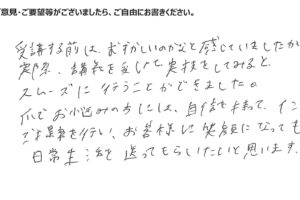 意見・ご要望等がございましたら、ご自由にお書きください。
受講する前は、むずかしいのかなと感じていましたが
実際、講義を受けて実技をしてみると、
スムーズに行うことができました。
爪でお悩みの方には、自信を持って、
を行い、お客様に笑顔になっても
日常生活を送ってもらいたいと思います。